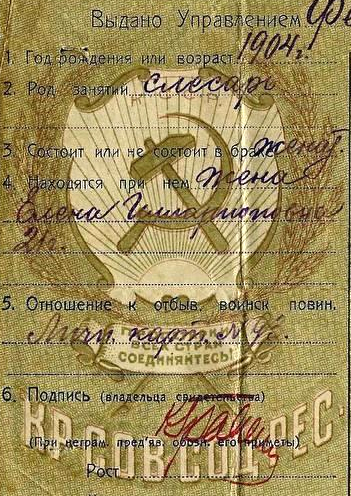 Выдано Управлением
1. Год рождения или возраст 1904 г.
2. Род занятий слесарь
3. Состоит или не состоит в браке женат
4. Находятся при нем жена
Елена
21 г.
5. Отношение к отбыв. воинск повин.
Личн. карт. №
СОЕДИНЯЙТЕСЬ!
6. Подпись (владельца свидетельства)
(При неграм. пред'яв. обозн. его приметы)
Рост